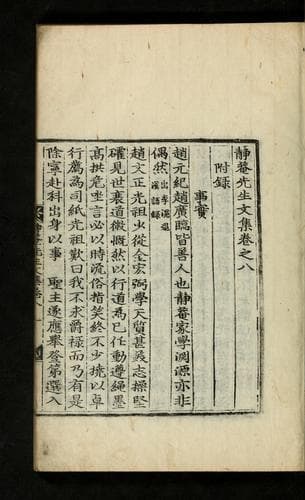 靜菴先生文集卷之八
附錄
事實
趙元紀趙廣臨皆善人也靜菴家學淵源亦非
偶然
趙文正光祖少從金宏弼學天質甚美志操堅
確見世衰道微慨然以行道為己任動遵繩墨
高拱危坐言必以時流俗指笑終不少撓以卓
行薦為司紙光祖歎曰我不求爵祿而乃有是
除寧赴科出身以事 聖主遂應舉登第選入